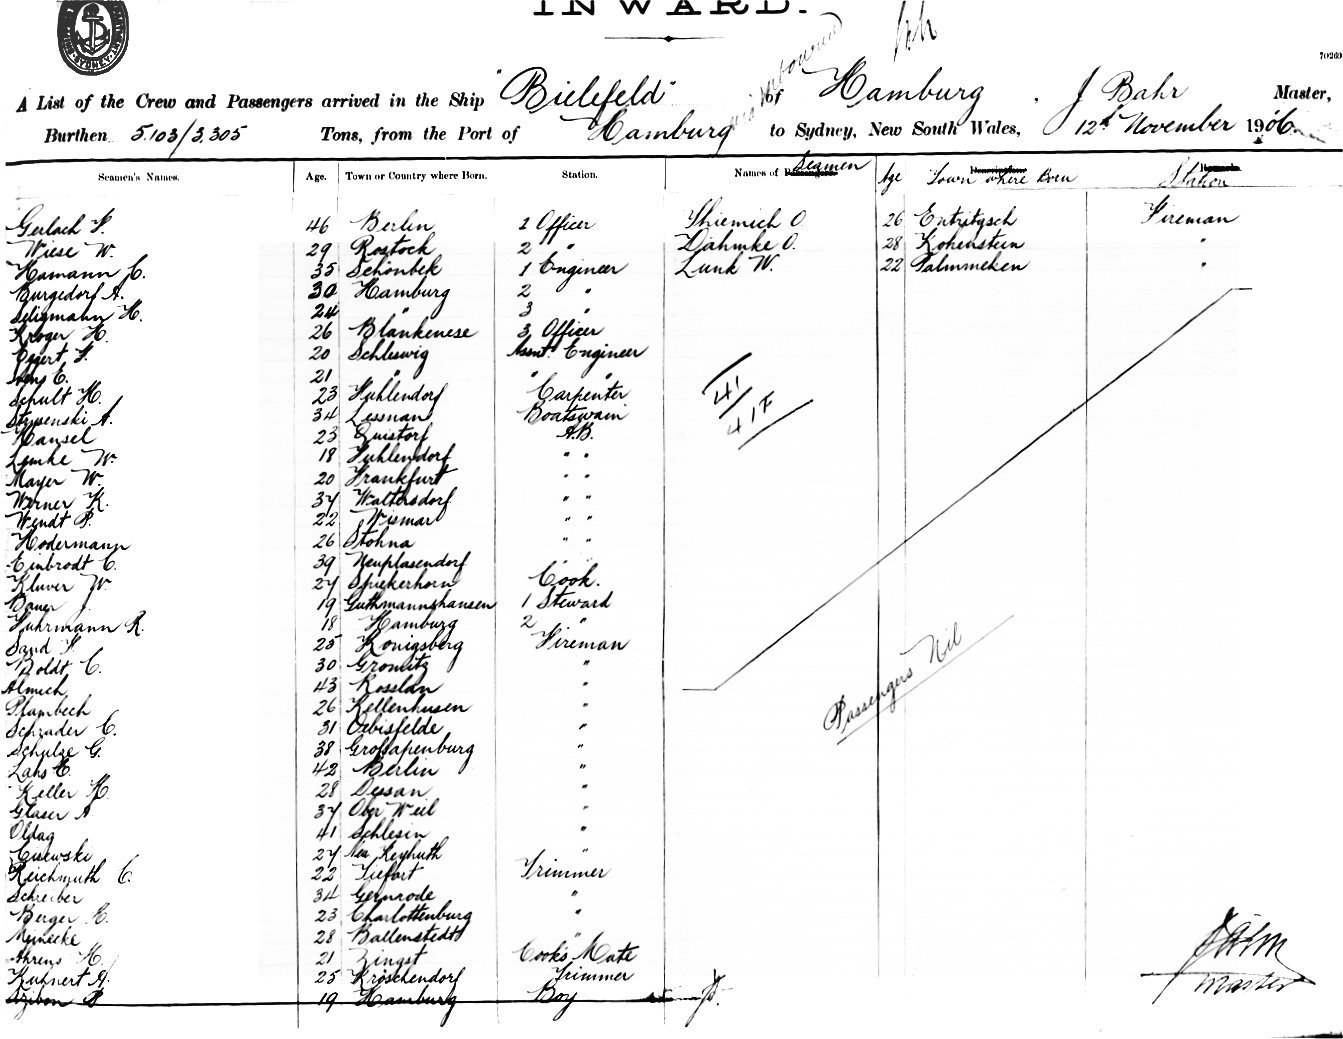 INWARD.
70260
A List of the Crew and Passengers arrived in the Ship "Bielefeld" of Hamburg, J Bahr Master,
Burthen 5.103/3.305 Tons, from the Port of Hamburg to Sydney, New South Wales, 12th November 1906.
Seamen's Names. Age. Town or Country where Born. Station. Names of Passengers Seamen Age Town where Born Station
Gerlach F. 46 Berlin 1 Officer Thiemich O. 26 Entritzsch Fireman
Wiese W. 29 Rostock 2 " Dahmke O. 28 Hohenstein "
Hamann C. 35 Schönbek 1 Engineer Lunk W. 22 Palmmeken "
Burgedorf A. 30 Hamburg 2 "
Seligmann H. 24 " 3 "
Kroger H. 26 Blankenese 3 Officer
Eggert F. 20 Schleswig Asst. Engineer
E. 21 " " "
Schult H. 23 Fuhlendorf Carpenter
Strysenski A. 34 Lessnau Boatswain
Hansel 23 Quistorf A.B.
Lemke W. 18 Fuhlendorf " "
Mayer W. 20 Frankfurt " "
Werner K. 34 Waltersdorf " "
Wendt P. 22 Wismar " "
Hodermann 26 Stohna " "
Einbrodt C. 39 Neuplasendorf
Kluver W 27 Spiekerhorn Cook.
Bauer J. 19 Guthmannshausen 1 Steward
Fuhrmann R. 18 Hamburg 2 "
Sand F. 25 Konigsberg Fireman
Boldt C. 30 Gromitz "
Almich 43 Rosslau "
Plambech 26 Kellenhusen "
Schrader C. 31 Oebisfelde "
Schulze G. 38 Großapenburg "
Lahs E. 42 Berlin "
Keller H. 28 Dessau "
Glaser A 34 Ober Weil "
Oldag 41 Schlesin "
Cisewski 27 Neu Keyhuth "
Reichmuth C. 22 Tiefort Trimmer
Schreiber 34 Gernrode "
Berger K. 23 Charlottenburg "
Meinecke 28 Ballenstedt "
Ahrens H. 21 Zingst Cook's Mate
Kuhnert A. 25 Kröschendorf Trimmer
19 Hamburg Boy
41
41 F
Passengers Nil
Master